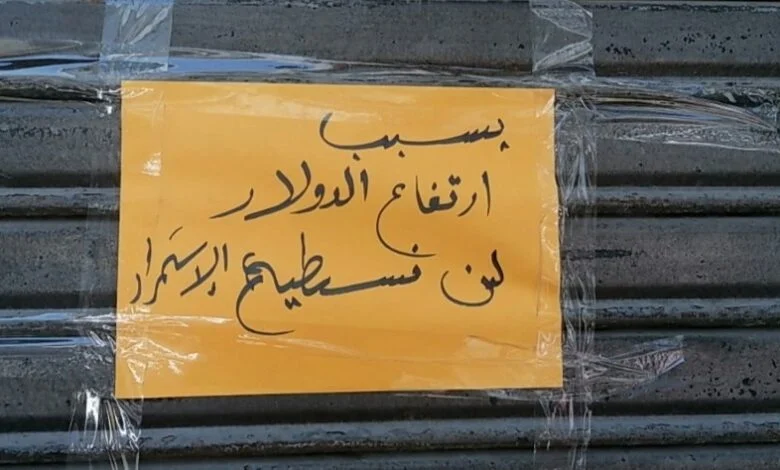 بسبب
ارتفاع الدولار
لن نستطيع الإستمرار